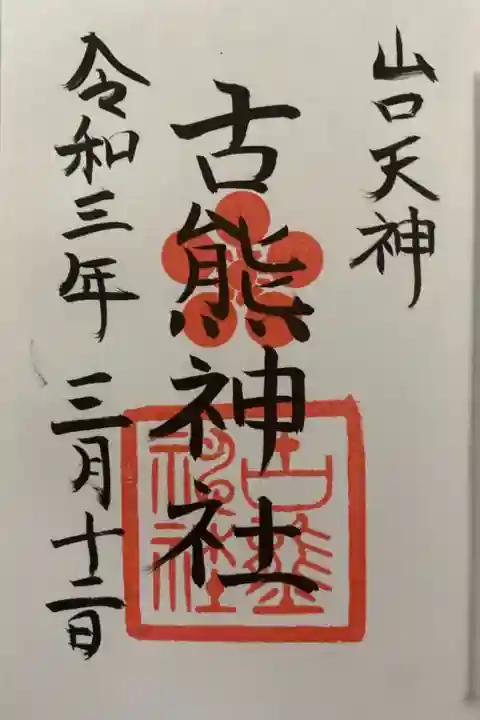 山口天神
古熊神社
古熊神社
令和三年 三月十二日